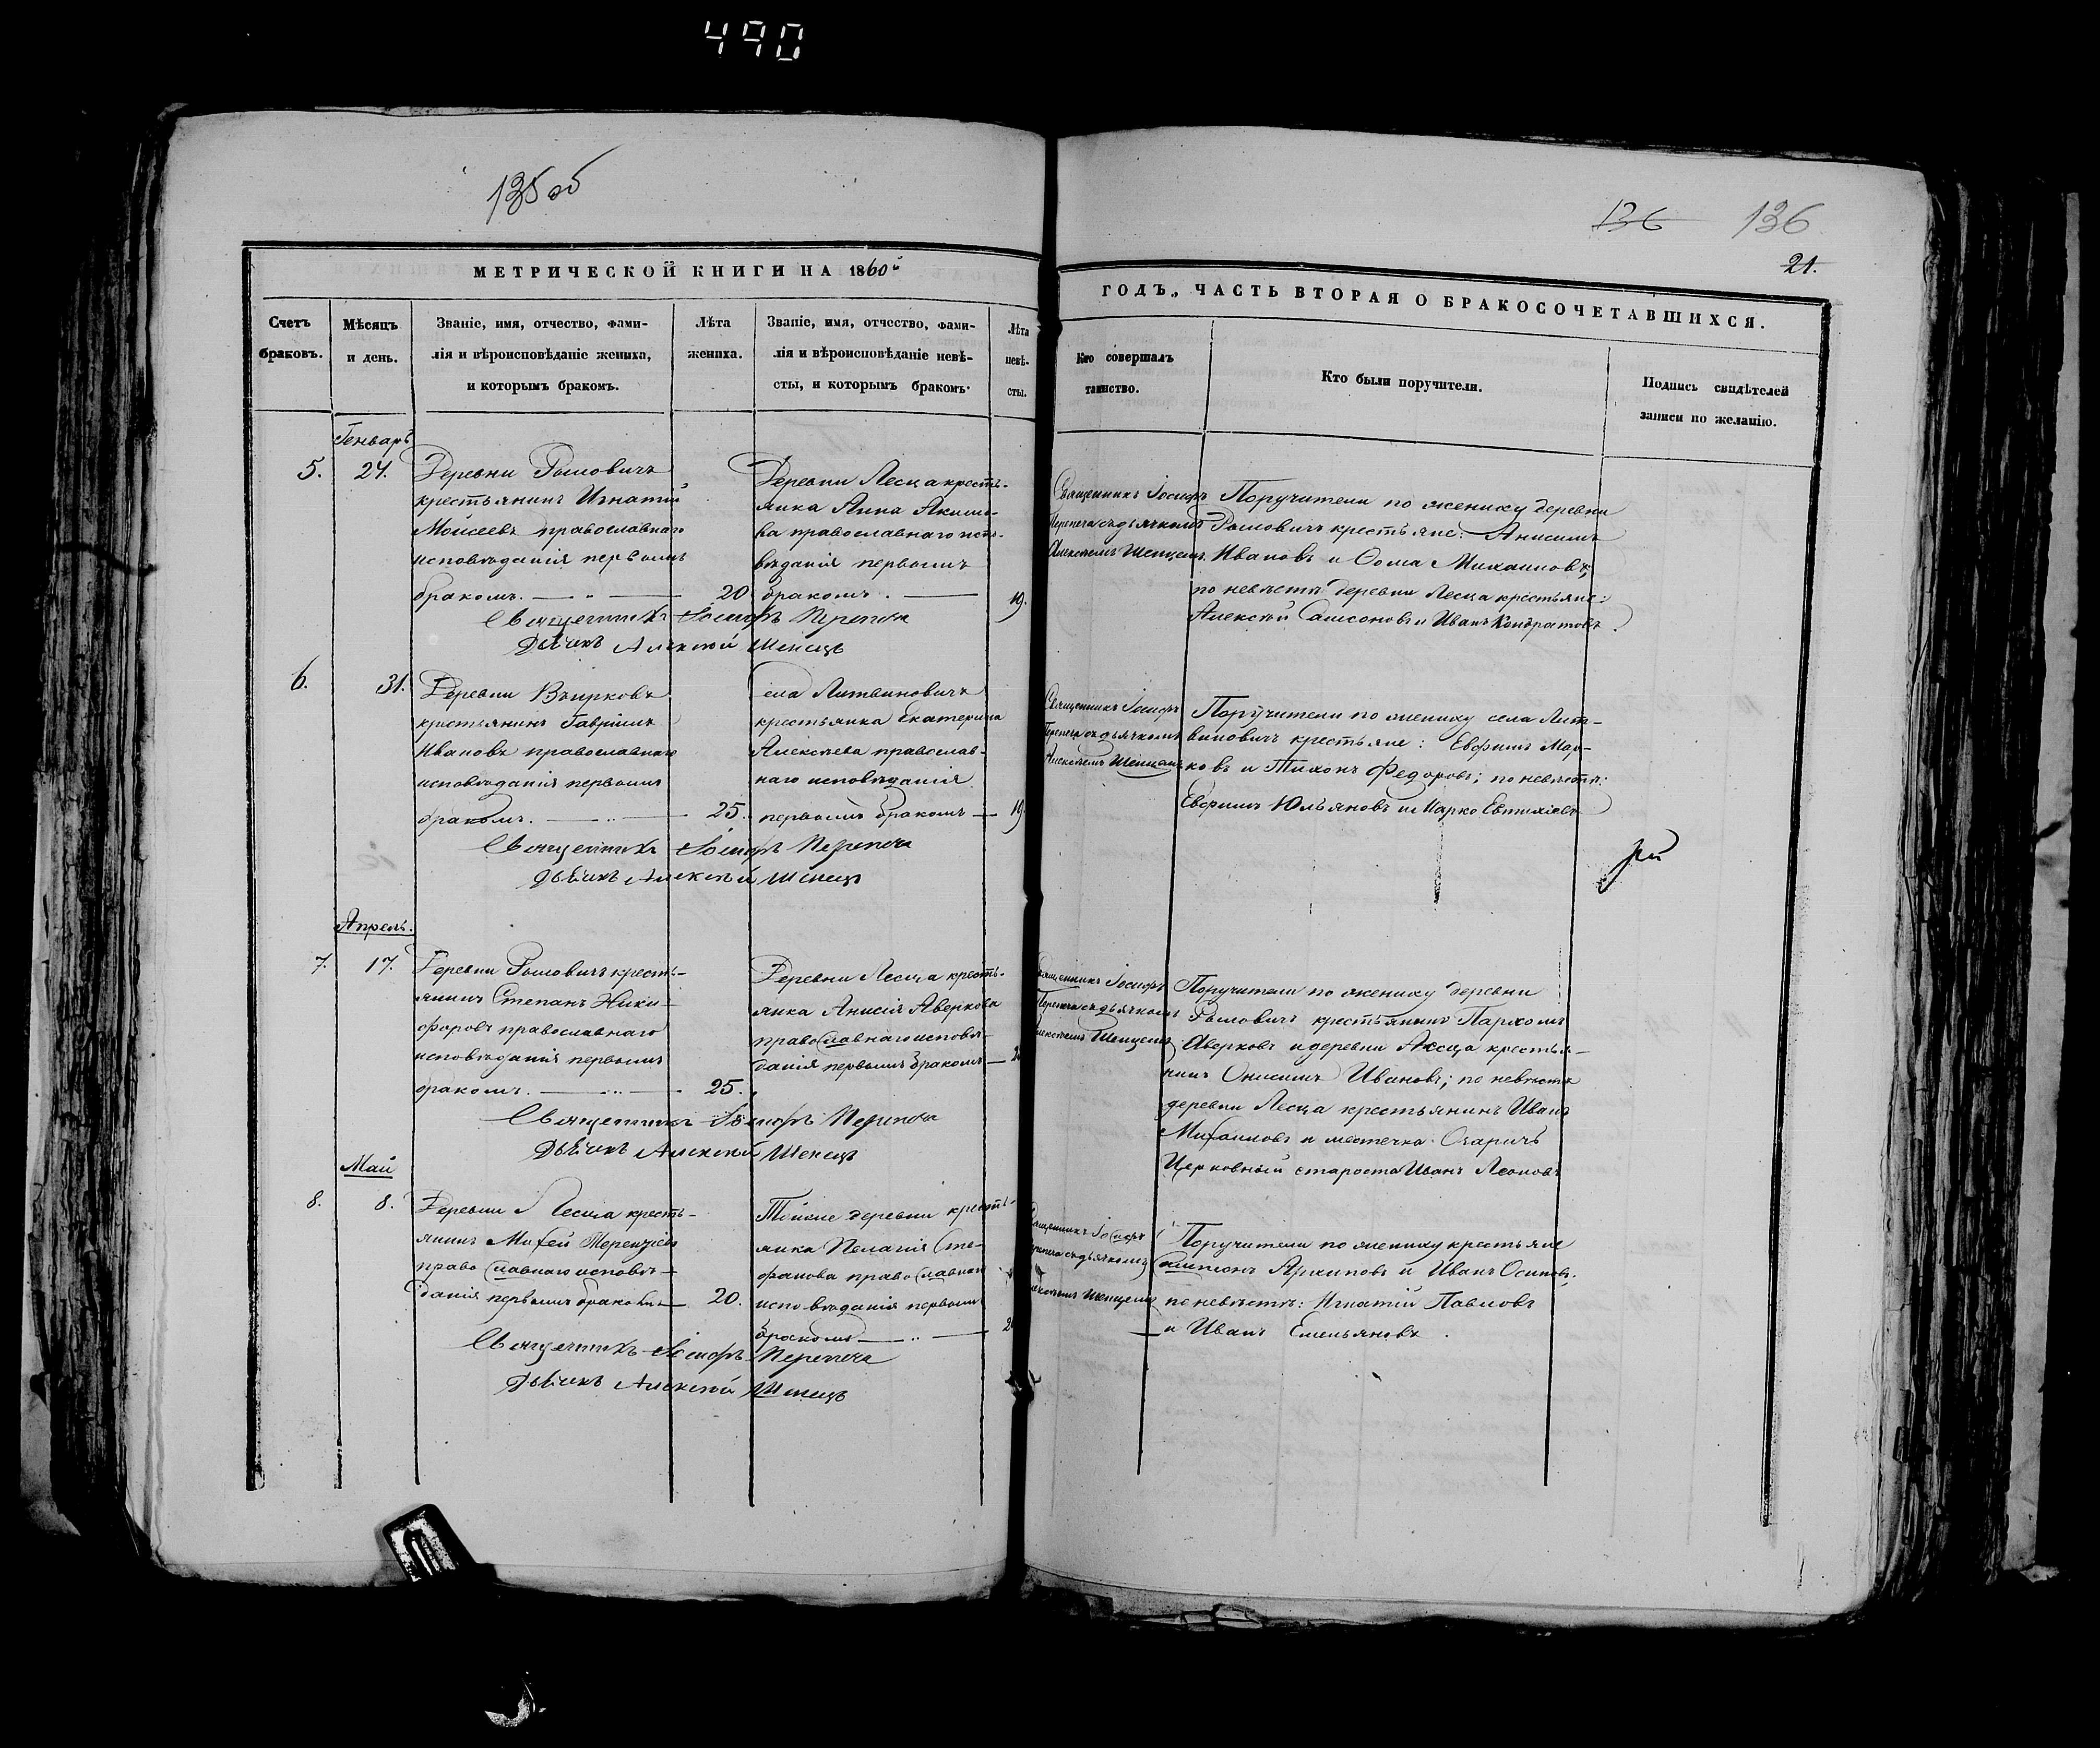 490
135 об
136 136
21.
МЕТРИЧЕСКОЙ КНИГИ НА 1860й
ГОДЪ,, ЧАСТЬ ВТОРАЯ О БРАКОСОЧЕТАВШИХСЯ.
Счетъ
браковъ.
Мѣсяцъ
и день.
Званіе, имя, отчество, фами-
лія и вѣроисповѣданіе жениха,
и которымъ бракомъ.
Лѣта
жениха.
Званіе, имя, отчество, фами-
лія и вѣроисповѣданіе невѣ-
сты, и которымъ бракомъ.
Лѣта
невѣ-
сты.
Кто совершалъ
таинство.
Кто были поручители.
Подпись свидѣтелей
записи по желанію.
Генварь
5.
24.
Деревни Рымовичъ
крестьянинъ Игнатій
Моисеевъ православнаго
исповѣданія первымъ
бракомъ.
20
Деревни Лесца кресть-
янка Анна Акимо-
ва православнаго испо-
вѣданія первымъ
бракомъ.
19.
Священникъ Іосифъ
Перепеча съ дьячкомъ
Алексѣемъ Шепецемъ.
Поручители по жениху деревни
Рымовичъ крестьяне: Анисимъ
Ивановъ и Ѳома Михаиловъ;
по невѣстѣ деревни Лесца крестьяне:
Алексѣй Самсоновъ и Иванъ Кондратовъ.
Священникъ Іосифъ Перепеча
Дьячикъ Алексѣй Шепецъ
6.
31.
Деревни Вѣтрковъ
крестьянинъ Гавріилъ
Ивановъ православнаго
исповѣданія первымъ
бракомъ.
25.
Села Литвиновичъ
крестьянка Екатерина
Алексѣева православ-
наго исповѣданія
первымъ бракомъ
19.
Священникъ Іосифъ
Перепеча съ дьячкомъ
Алексѣемъ Шепецемъ
Поручители по жениху села Лит-
виновичъ крестьяне: Евфимъ Мар-
ковъ и Тихонъ Федоровъ; по невѣстѣ:
Евфимъ Юльяновъ и Марко Евтихіевъ
Священникъ Іосифъ Перепеча
Дьячикъ Алексѣй Шепецъ
Апрель.
7.
17.
Деревни Рымовичъ кресть-
янинъ Степанъ Ники-
форовъ православнаго
исповѣданія первымъ
бракомъ.
25.
Деревни Лесца кресть-
янка Анисія Аверкова
православнаго исповѣ-
данія первымъ бракомъ
Священникъ Іосифъ
Перепеча съ дьячкомъ
Алексѣемъ Шепецемъ
Поручители по жениху деревни
Рымовичъ крестьянинъ Пархомъ
Аверковъ и деревни Лесца крестья-
нинъ Онисимъ Ивановъ; по невѣстѣ
деревни Лесца крестьянинъ Иванъ
Михаиловъ и мѣстечка Озаричъ
Церковный староста Иванъ Леоновъ
Священникъ Іосифъ Перепеча
Дьячикъ Алексѣй Шепецъ
Май
8.
8.
Деревни Лесца кресть-
янинъ Михей Терентіевъ
православнаго исповѣ-
данія первымъ бракомъ
20.
Тойже деревни кресть-
янка Пелагія Сте-
фанова православнаго
исповѣданія первымъ
бракомъ
Священникъ Іосифъ
Перепеча съ дьячкомъ
Алексѣемъ Шепецемъ
Поручители по жениху крестьяне
Архиповъ и Иванъ Осиповъ.
по невѣстѣ: Игнатій Павловъ
и Иванъ Емельяновъ.
Священникъ Іосифъ Перепеча
Дьячикъ Алексѣй Шепецъ